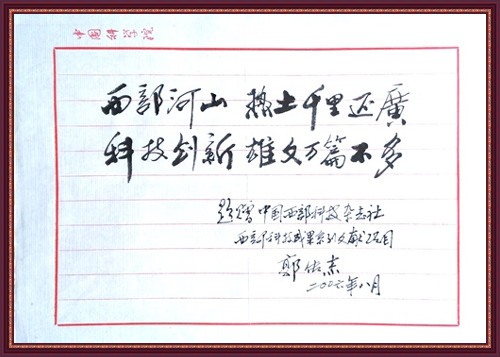 中国科学院
西部河山 热土千里还廣
科技创新 雄文万篇不多
题赠中国西部科技杂志社
西部科技成果系列文献目
郭传杰
二〇〇六年八月